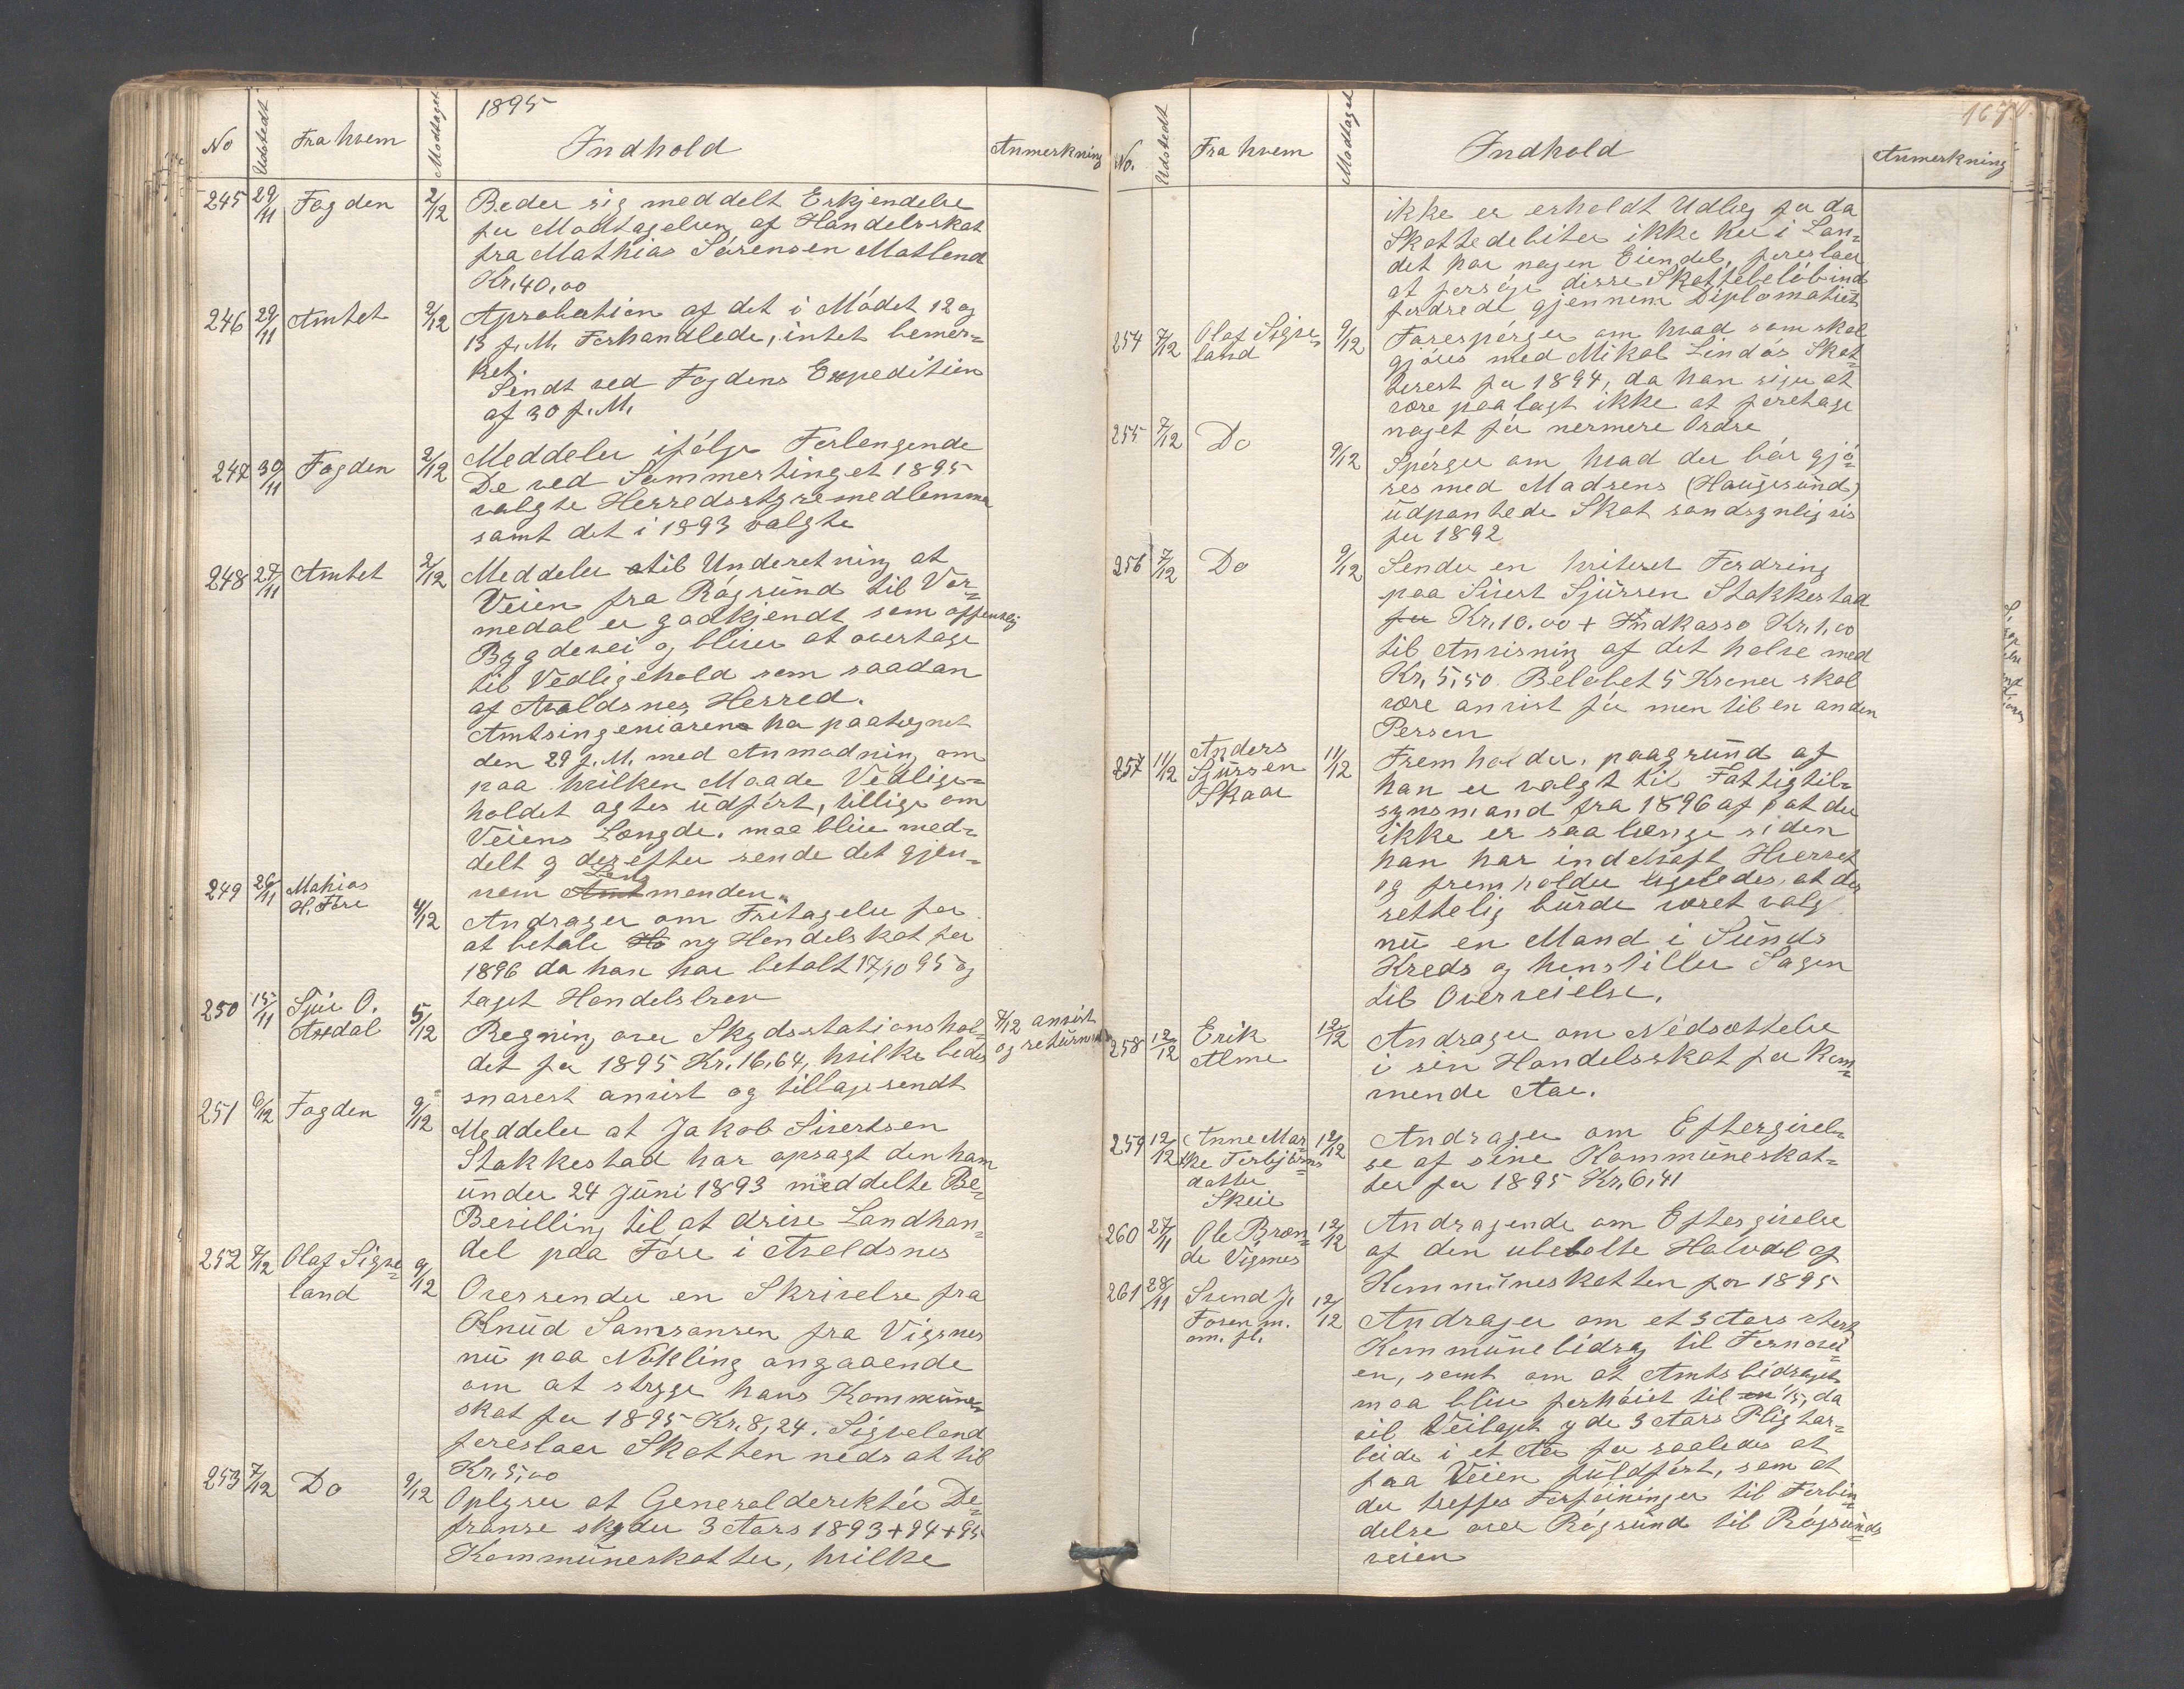 1895
No Udstedt Fra hvem Modtaget Indhold Anmerkning
245 29/11 Fogden 2/12 Beder sig meddelt Erkjendelse
for Modtagelsen af Handelsskat
fra Mathias Sørensen Matland
Kr. 40,00
246 29/11 Amtet 2/12 Aprobation af det i Mødet 12 og
13 f. M. Forhandlede, intet bemer-
ket.
Sendt ved Fogdens Expedition
af 30 f. M.
247 30/11 Fogden 2/12 Meddeler ifølge Forlengende
De ved Sommertinget 1895
valgte Herredsstyremedlemmer
samt det i 1893 valgte
248 27/11 Amtet 2/12 Meddeler til Underetning at
Veien fra Røgsund til Vor-
medal er godkjendt som offentlig
Bygdevei og bliver at overtage
til Vedligehold som saadan
af Avaldsnes Herred.
Amtsingeniøren ha paategnet
den 29 f. M. med Anmodning om
paa hvilken Maade Vedlige-
holdet agtes udført, tillige om
Veiens Længde. maa blive med-
delt og derefter sende det gjen-
Lens
nem Amtmanden.
249 26/11 Mahias
H. Føre 4/12 Andrager om Fritagelse for
at betale Ha ny Handelskat for
1896 da han har betalt 17/10 95 og
taget Handelsbrev
250 15/11 Sjur O.
Arsdal 5/12 Regning over Skydsstationshol-
det for 1895 Kr. 16,64, hvilke bedes
snarest anvist og tillage sendt
7/12 anvist
og returneret
251 6/12 Fogden 9/12 Meddeler at Jakob Sivertsen
Stakkestad har opsagt den ham
under 24 Juni 1893 meddelte Be-
Bevilling til at drive Landhan-
del paa Føre i Avaldsnes
252 7/12 Olaf Sigve-
land 9/12 Oversender en Skrivelse fra
Knud Samsonsen fra Vigsnes
nu paa Nøkling angaaende
om at stryge hans Kommune-
skat for 1895 Kr. 8,24. Sigveland
foreslaar Skatten nedsat til
Kr. 5,00
253 7/12 Do 9/12 Oplyser at Generalderektør De-
franse skyder 3 Aars 1893+94+95
Kommuneskatter, hvilke
167
No. Udstedt Fra hvem Modtaget Indhold Anmerkning
ikke er erholdt Udlæg for da
Skattedebiter ikke her i Lan-
det har nogen Eiendel, foreslaar
at forsøge disse Skattebeløb ind
fordredt gjennem Diplomatiet
254 7/12 Olaf Sigve-
land 9/12 Forespørger om hvad som skal
gjøres med Mikal Lindøs Skat-
terest for 1894, da han siger at
være paalagt ikke at foretage
noget før nermere Ordre
255 7/12 Do 9/12 Spørger om hvad der bør gjø-
res med Madsens (Haugesund)
udpantede Skat sandsynligvis
for 1892
256 7/12 Do 9/12 Sender en kviteret Fordring
paa Sivert Sjursen Stakkestad
for Kr. 10.00 + Indkasso Kr. 1,00
til Anvisning af det halve med
Kr. 5,50. Beløbet 5 Kroner skal
være anvist før men til en anden
Person
257 11/12 Anders
Sjursen
Skaar 11/12 Fremholder, paagrund af
han er valgt til Fattigtil-
synsmand fra 1896 af at der
ikke er saa længe siden
han har indehaft Hvervet
og fremholder ligeledes, at der
rettelig burde været valg
nu en Mand i Sunds
Kreds og henstiller Sagen
til Overveielse.
258 12/12 Erik
Alme 12/12 Andrager om Nedsættelse
i sin Handelsskat for kom-
mende Aar.
259 12/12 Anne Mar-
the Torbjørns-
datter
Skeie 12/12 Andrager om Eftergivel-
se af sine Kommuneskat-
ter for 1895 Kr. 6,41
260 27/11 Ole Bræn-
de Vigsnes 12/12 Andragende om Eftergivelse
af den ubetalte Halvdel af
Kommuneskatten for 1895
261 28/11 Svend J.
Fosen m.
m. fl. 12/12 Andrager om et 3 Aars
Kommunebidrag til Fosnavei-
en, samt om at Amtsbidraget
maa blive forhøiet til 1/5, da
vil Veilaget yde 3 Aars Pligtar-
beide i et Aar for saaledes at
faa Veien fuldført, som at
der treffes Forføininger til Forbin-
delse over Røgsund til Røgsunds-
veien